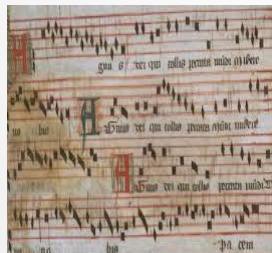 Agnus dei qui tollis peccata mūdi misere
no bis Agnus dei qui tollis peccata mūdi misere
Agnus dei qui tollis peccata mūdi
no bis pa cem